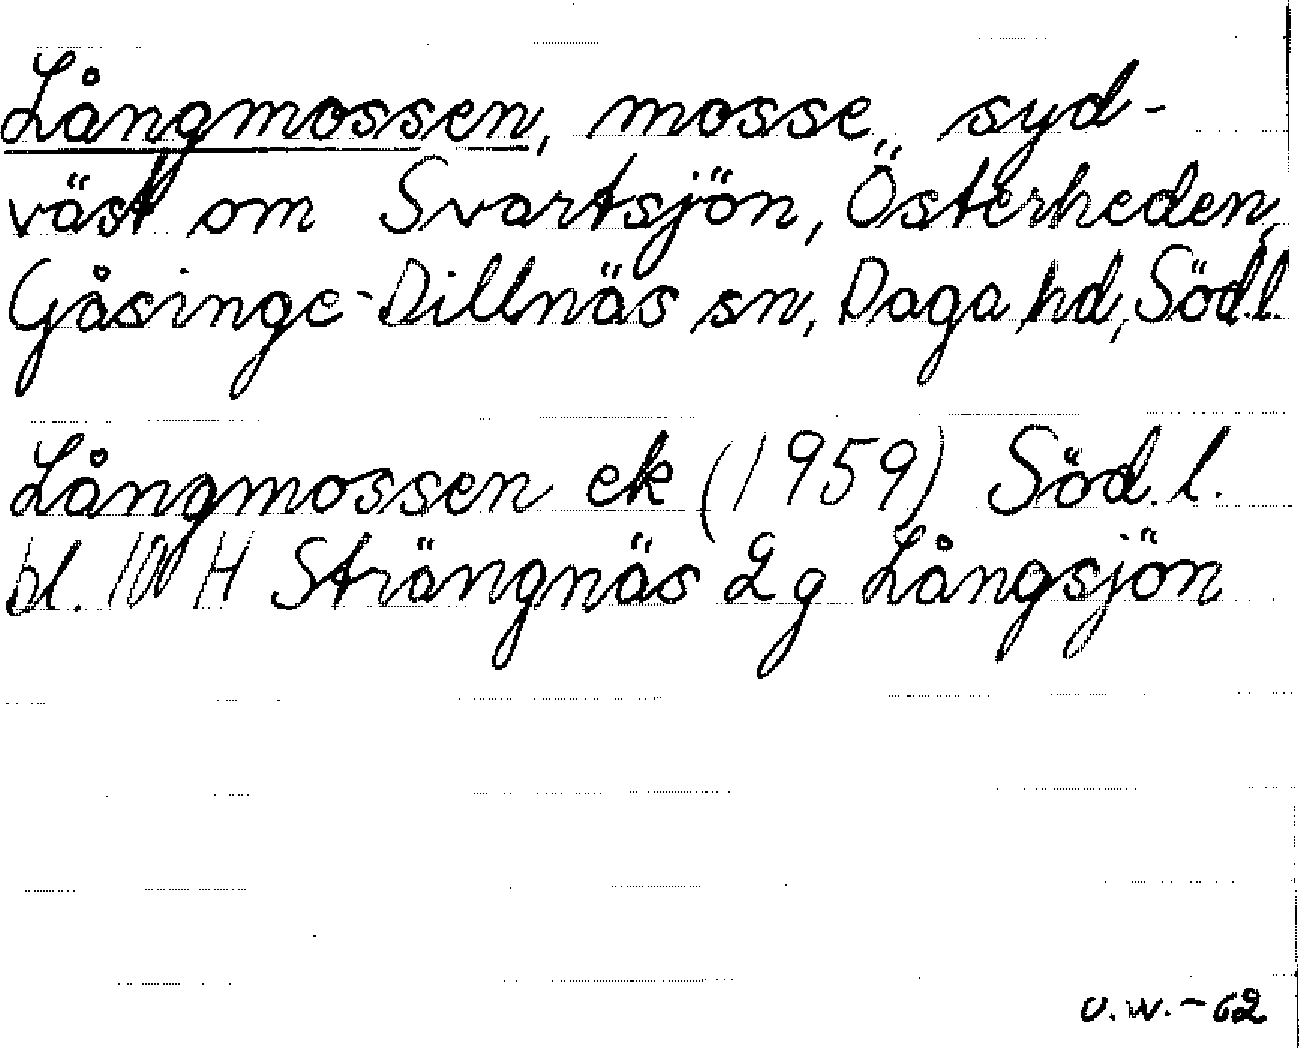 Långmossen, mosse, syd-
väst om Svartsjön, Österheden,
Gåsinge-Dillnäs sn, Daga hd, Söd.l.
Långmossen ek (1959) Söd.l.
bl. 10 H Strängnäs 2g Långsjön
O.W.-62